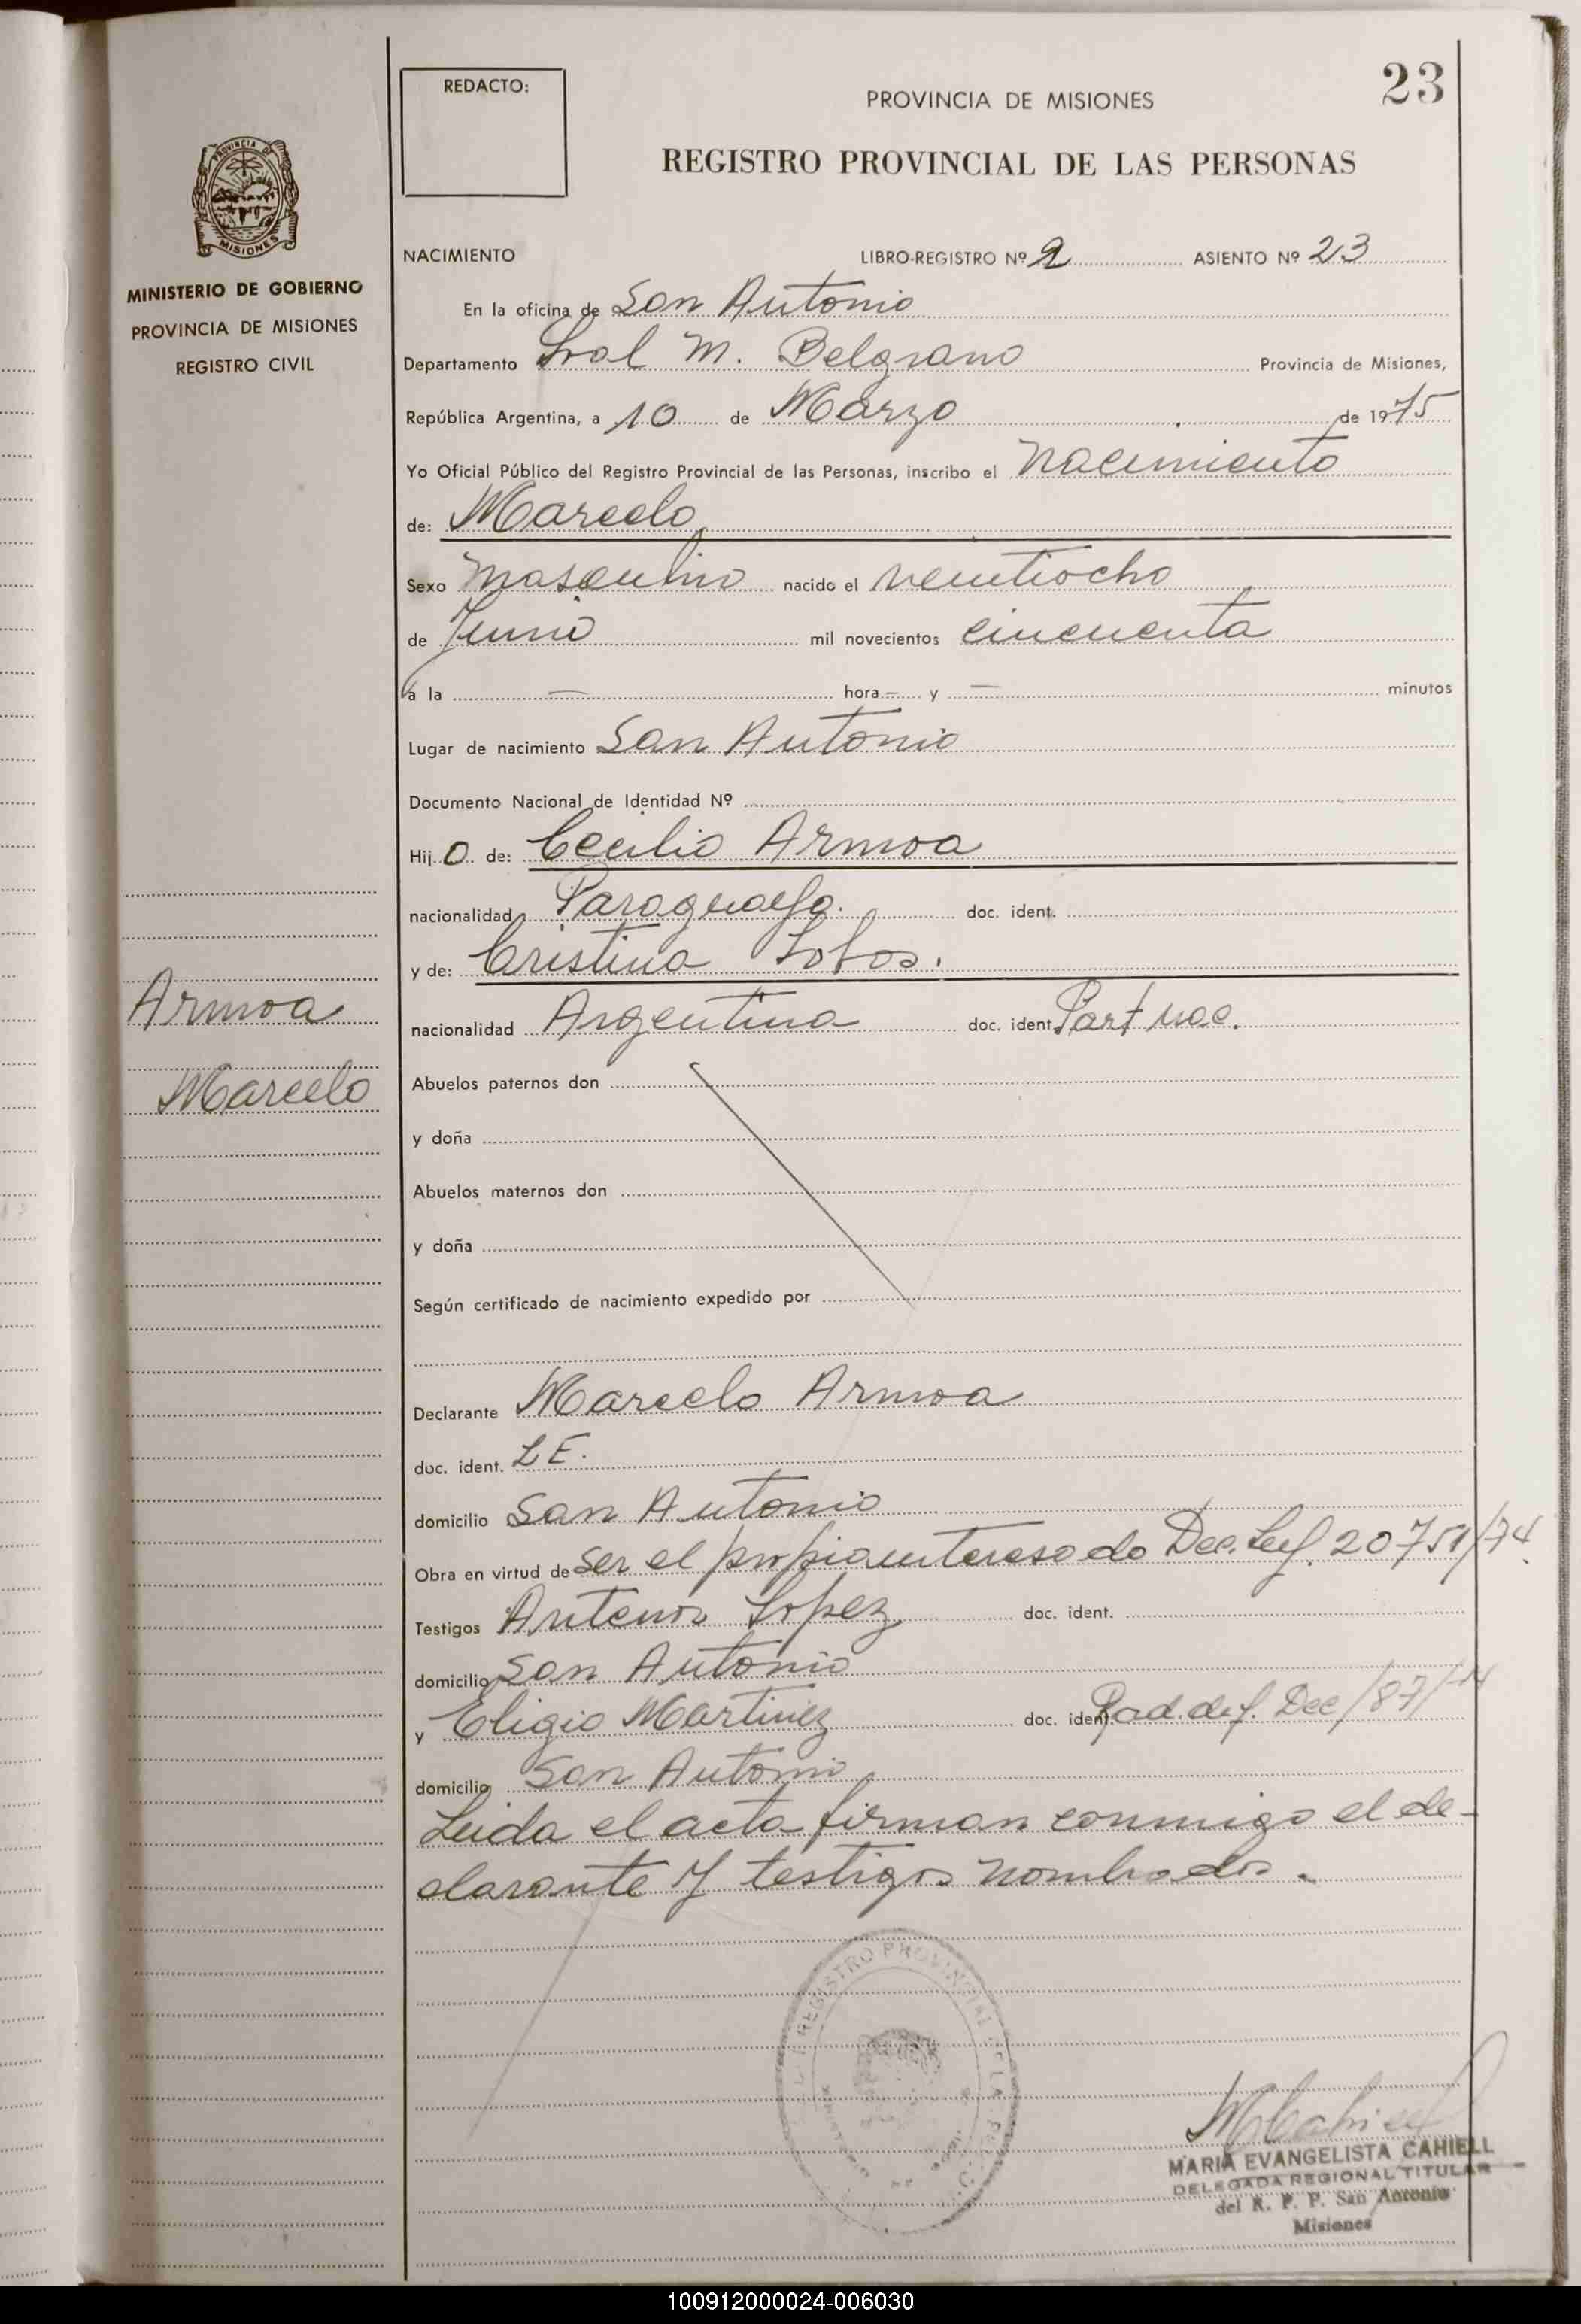 23
REDACTO:
PROVINCIA DE MISIONES
REGISTRO PROVINCIAL DE LAS PERSONAS
PROVINCIA DE
MISIONES
MINISTERIO DE GOBIERNO
PROVINCIA DE MISIONES
REGISTRO CIVIL
NACIMIENTO LIBRO-REGISTRO Nº 2 ASIENTO Nº 23
En la oficina de San Antonio
Departamento Gral M. Belgrano Provincia de Misiones,
República Argentina, a 10 de Marzo de 1975
Yo Oficial Público del Registro Provincial de las Personas, inscribo el nacimiento
de: Marcelo
Sexo masculino nacido el veintiocho
de Junio mil novecientos cincuenta
a la — hora — y — minutos
Lugar de nacimiento San Antonio
Documento Nacional de Identidad Nº
Hijo de: Cecilio Armoa
nacionalidad Paraguaya. doc. ident.
y de: Cristina Lobos.
nacionalidad Argentina doc. ident. Part nac.
Armoa
Marcelo
Abuelos paternos don
y doña
Abuelos maternos don
y doña
Según certificado de nacimiento expedido por
Declarante Marcelo Armoa
doc. ident. L E.
domicilio San Antonio
Obra en virtud de ser el propio interesado Dec. Ley. 20751/74.
Testigos Antenor Lopez doc. ident.
domicilio San Antonio
y Eligio Martinez doc. ident. Rad. def. Dec /87/74
domicilio San Antonio
Leida el acta firman conmigo el de-
clarante y testigos nombrados.
REGISTRO PROVINCIAL DE LA
MARIA EVANGELISTA CAHIELL
DELEGADA REGIONAL TITULAR
del R. P. P. San Antonio
Misiones
100912000024-006030